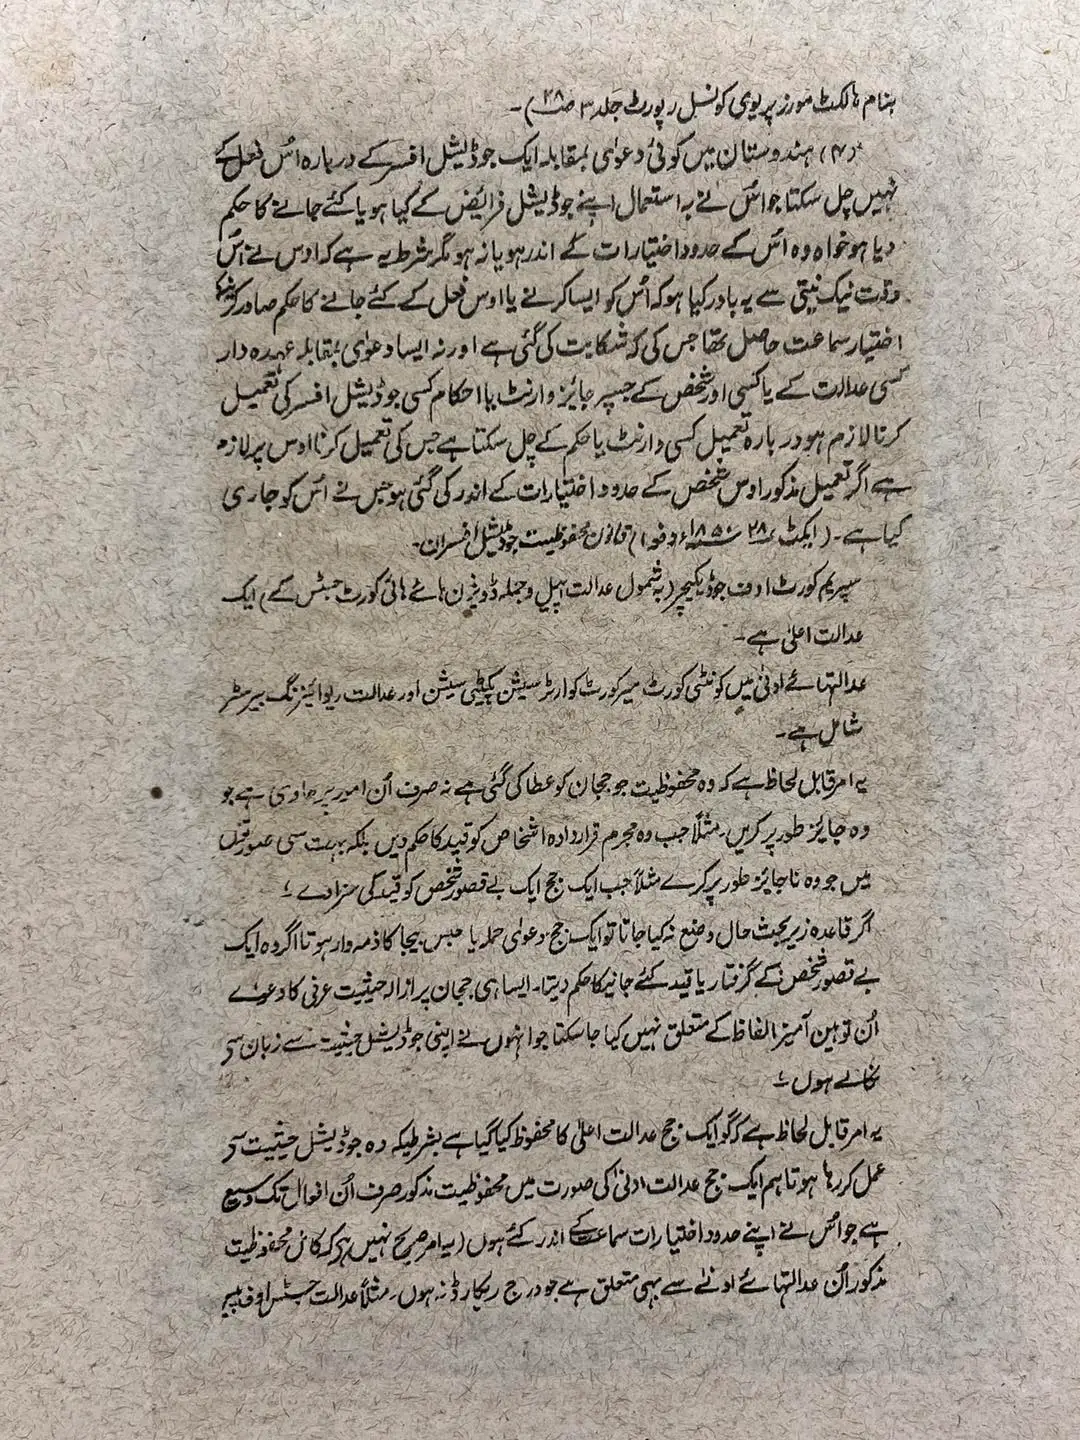 بنام ہالکٹ مورز پریوی کونسل رپورٹ جلد ۳ صـ ۲۸) ۔
(۴) ہندوستان میں کوئی دعوٰی بمقابلہ ایک جوڈیشل افسر کے دربارہ اُس فعل کے
نہیں چل سکتا جو اُس نے بہ استعمال اپنے جوڈیشل فرائض کے کیا ہو یا کئے جانے کا حکم
دیا ہو خواہ وہ اُس کے حدود اختیارات کے اندر ہو یا نہ ہو مگر شرط یہ ہے کہ اوس نے اُس
وقت نیک نیتی سے یہ باور کیا ہو کہ اُس کو ایسا کرنے یا اوس فعل کے کئے جانے کا حکم صادر کرنیکا
اختیار سماعت حاصل تھا جس کی کہ شکایت کی گئی ہے اور نہ ایسا دعوٰی بمقابلہ عہدہ دار
کسی عدالت کے یا کسی اور شخص کے جسپر جایز وارنٹ یا احکام کسی جوڈیشل افسر کی تعمیل
کرنا لازم ہو دربارہ تعمیل کسی وارنٹ یا حکم کے چل سکتا ہے جس کی تعمیل کرنا اوس پر لازم
ہے اگر تعمیل مذکور اوس شخص کے حدود اختیارات کے اندر کی گئی ہو جس نے اُس کو جاری
کیا ہے ۔ (ایکٹ ۱۸ ۱۸۵۰ء دفعہ ۱) قانون محفوظیت جوڈیشل افسران ۔
سپریم کورٹ اوف جوڈیکیچر (بہ شمول عدالت اپیل و جملہ ڈویژن ہائے ہائی کورٹ جسٹس کے) ایک
عدالت اعلٰی ہے ۔
عدالتہائے ادنٰی میں کونٹی کورٹ میر کورٹ کوارٹر سیشن پیٹی سیشن اور عدالت ریوائیزنگ بیرسٹر
شامل ہے ۔
یہ امر قابل لحاظ ہے کہ وہ محفوظیت جو ججان کو عطا کی گئی ہے نہ صرف اُن امور پر حاوی ہے جو
وہ جایز طور پر کریں ۔ مثلاً جب وہ مجرم قرار دادہ اشخاص کو قید کا حکم دیں بلکہ بہت سی صورتوں
میں جو وہ ناجایز طور پر کرے مثلاً جب ایک جج ایک بے قصور شخص کو قید کی سزا دے ۔
اگر قاعدہ زیر بحث حال وضع نہ کیا جاتا تو ایک جج دعوٰی حملہ یا حبس بیجا کا ذمہ وار ہوتا اگر وہ ایک
بے قصور شخص کے گرفتار یا قید کئے جانیکا حکم دیتا ۔ ایسا ہی ججان پر ازالہ حیثیت عرفی کا دعوے
اُن توہین آمیز الفاظ کے متعلق نہیں کیا جا سکتا جو انہوں نے اپنی جوڈیشل حیثیت سے زبان سی
نکالے ہوں ۔
یہ امر قابل لحاظ ہے کہ گو ایک جج عدالت اعلٰی کا محفوظ کیا گیا ہے بشرطیکہ وہ جوڈیشل حیثیت سی
عمل کر رہا ہو تاہم ایک جج عدالت ادنٰی کی صورت میں محفوظیت مذکور صرف اُن افعال تک وسیع
ہے جو اُس نے اپنے حدود اختیارات سماعت کے اندر کئے ہوں (یہ امر صریح نہیں ہے کہ محفوظیت
مذکور اُن عدالتہائے ادنے سے بھی متعلق ہے جو درج ریکارڈ نہ ہوں ۔ مثلاً عدالت جسٹس اوف پیس